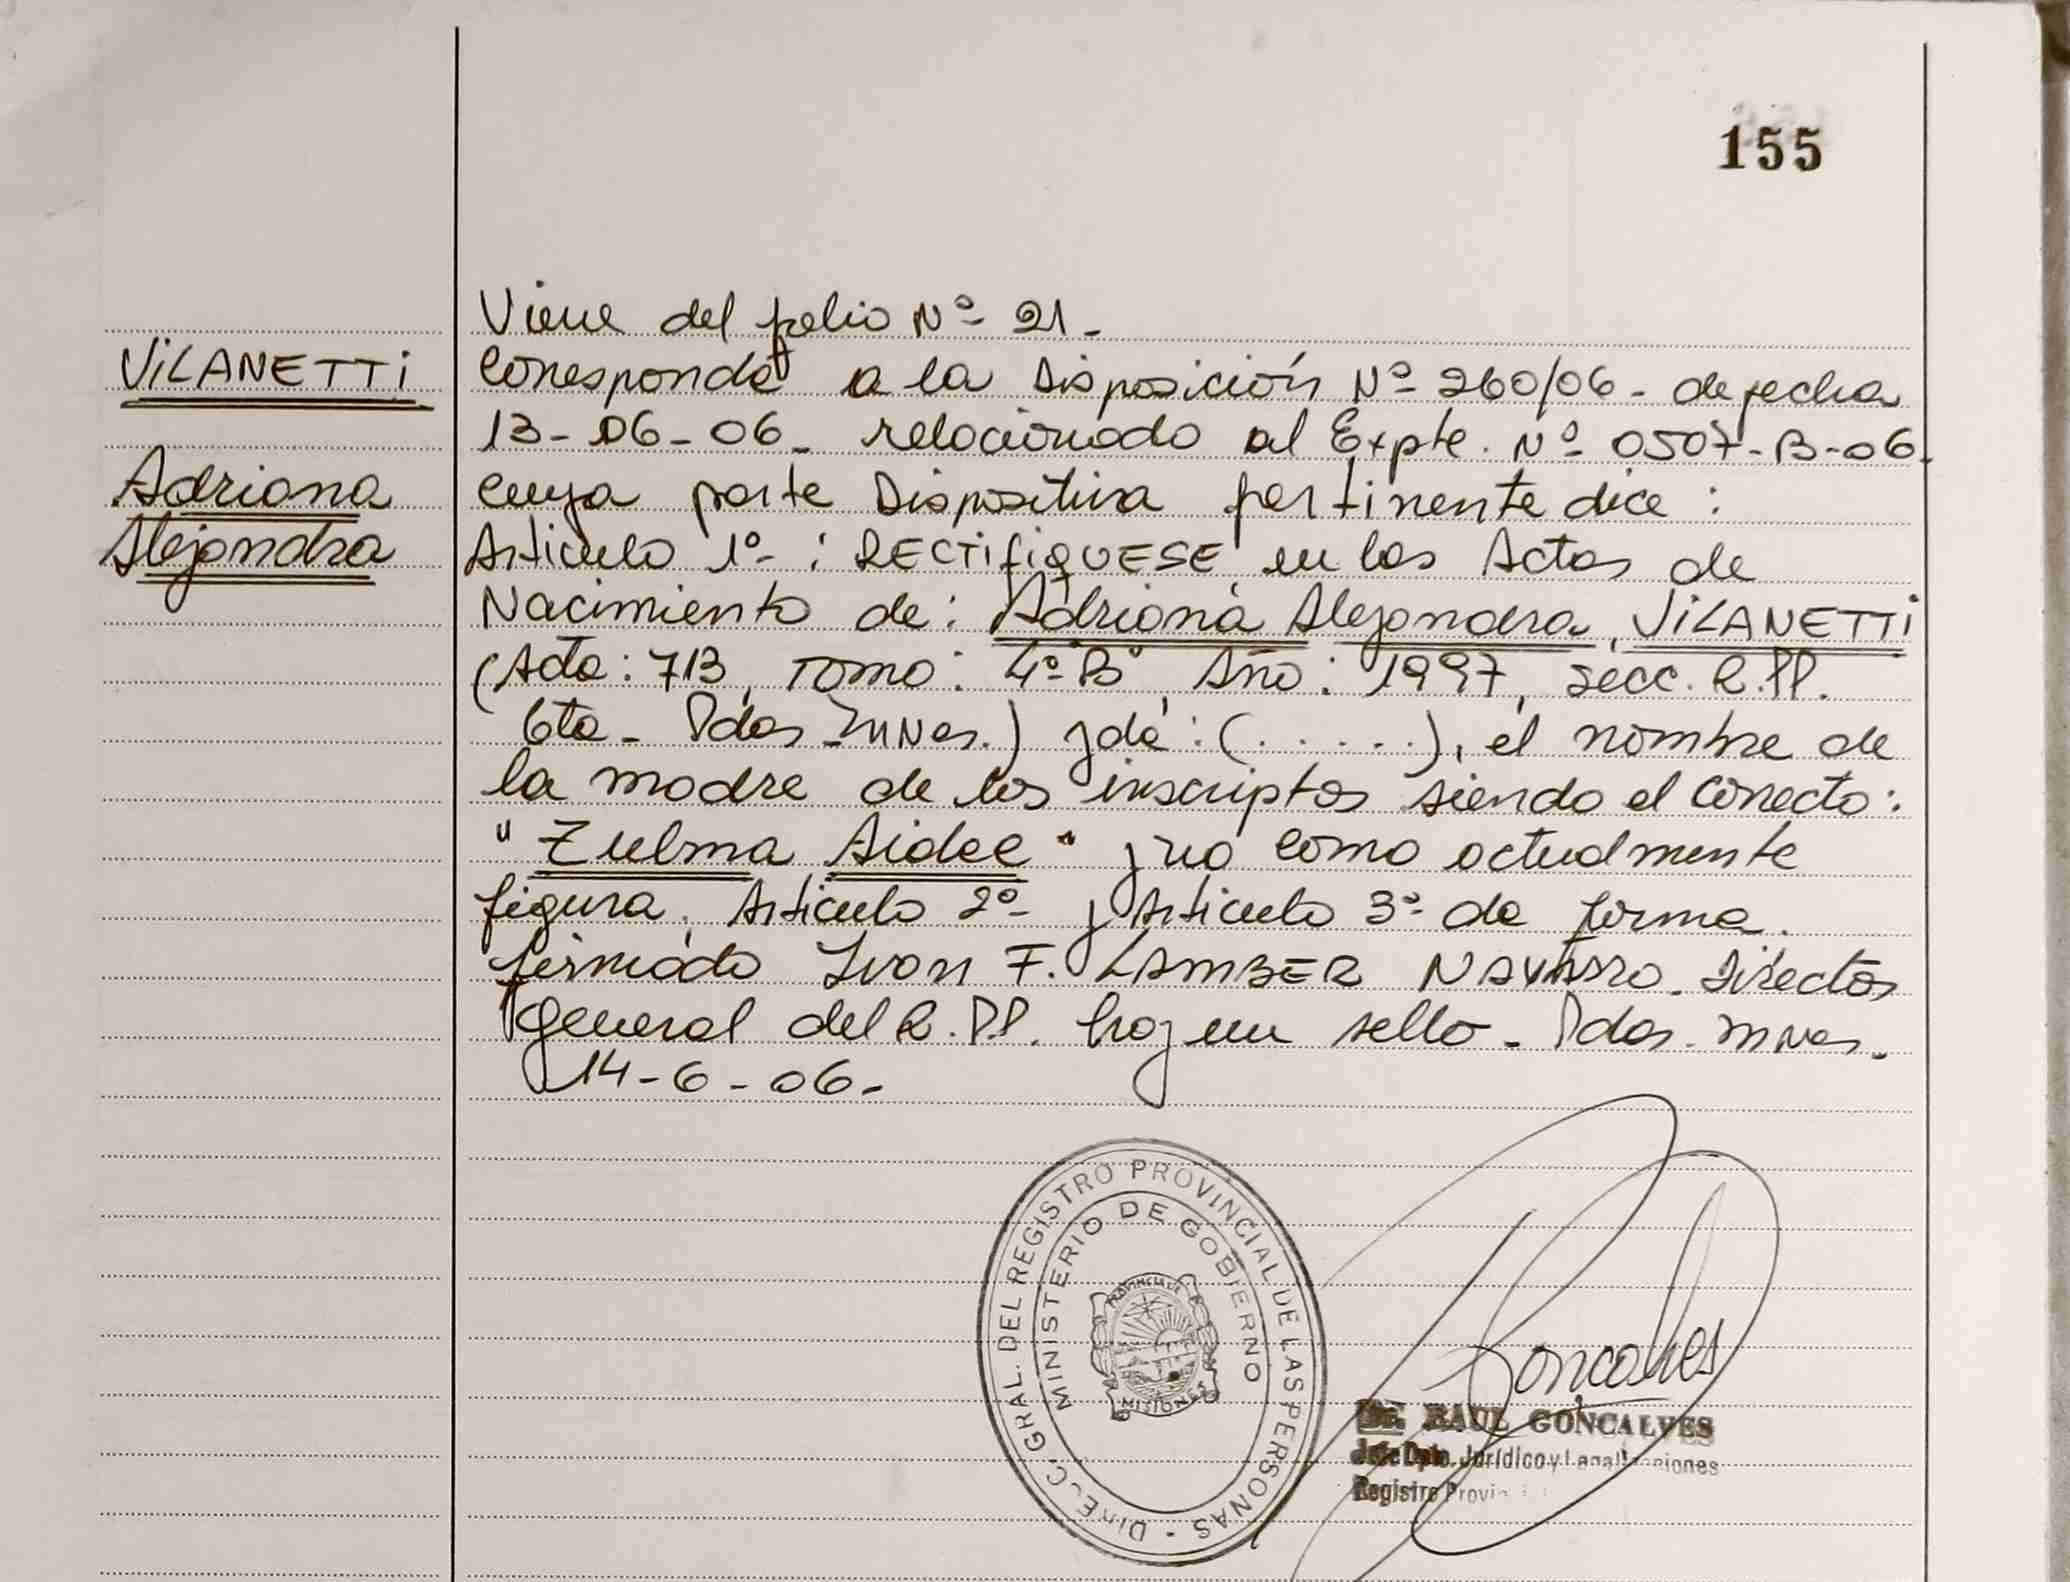 155
VILANETTI
Adriana
Alejandra
Viene del folio Nº 21-
Corresponde a la Disposición Nº 260/06- de fecha
13-06-06- relacionado al Expte. Nº 0507-B-06
cuya parte Dispositiva pertinente dice:
Articulo 1º-: RECTIFIQUESE en las Actas de
Nacimiento de: Adriana Alejandra, VILANETTI
(Acta: 713, Tomo: 4º"B", Año: 1997, secc. R.PP.
6ta- Pdas-MNes.) y de: (.....), el nombre de
la madre de los inscriptos siendo el correcto:
"Zulma Aidee" y no como actualmente
figura. Articulo 2º- y Articulo 3º- de forma.
firmado Ivan F. LAMBER NAVARRO. Director
general del R.PP. hay un sello- Pdas. MNes.
14-6-06-
DIREC. GRAL. DEL REGISTRO PROVINCIAL DE LAS PERSONAS -
MINISTERIO DE GOBIERNO
PROVINCIA DE
MISIONES
Goncalves
Dr. RAUL GONCALVES
Jefe Dpto. Jurídico y Legalizaciones
Registro